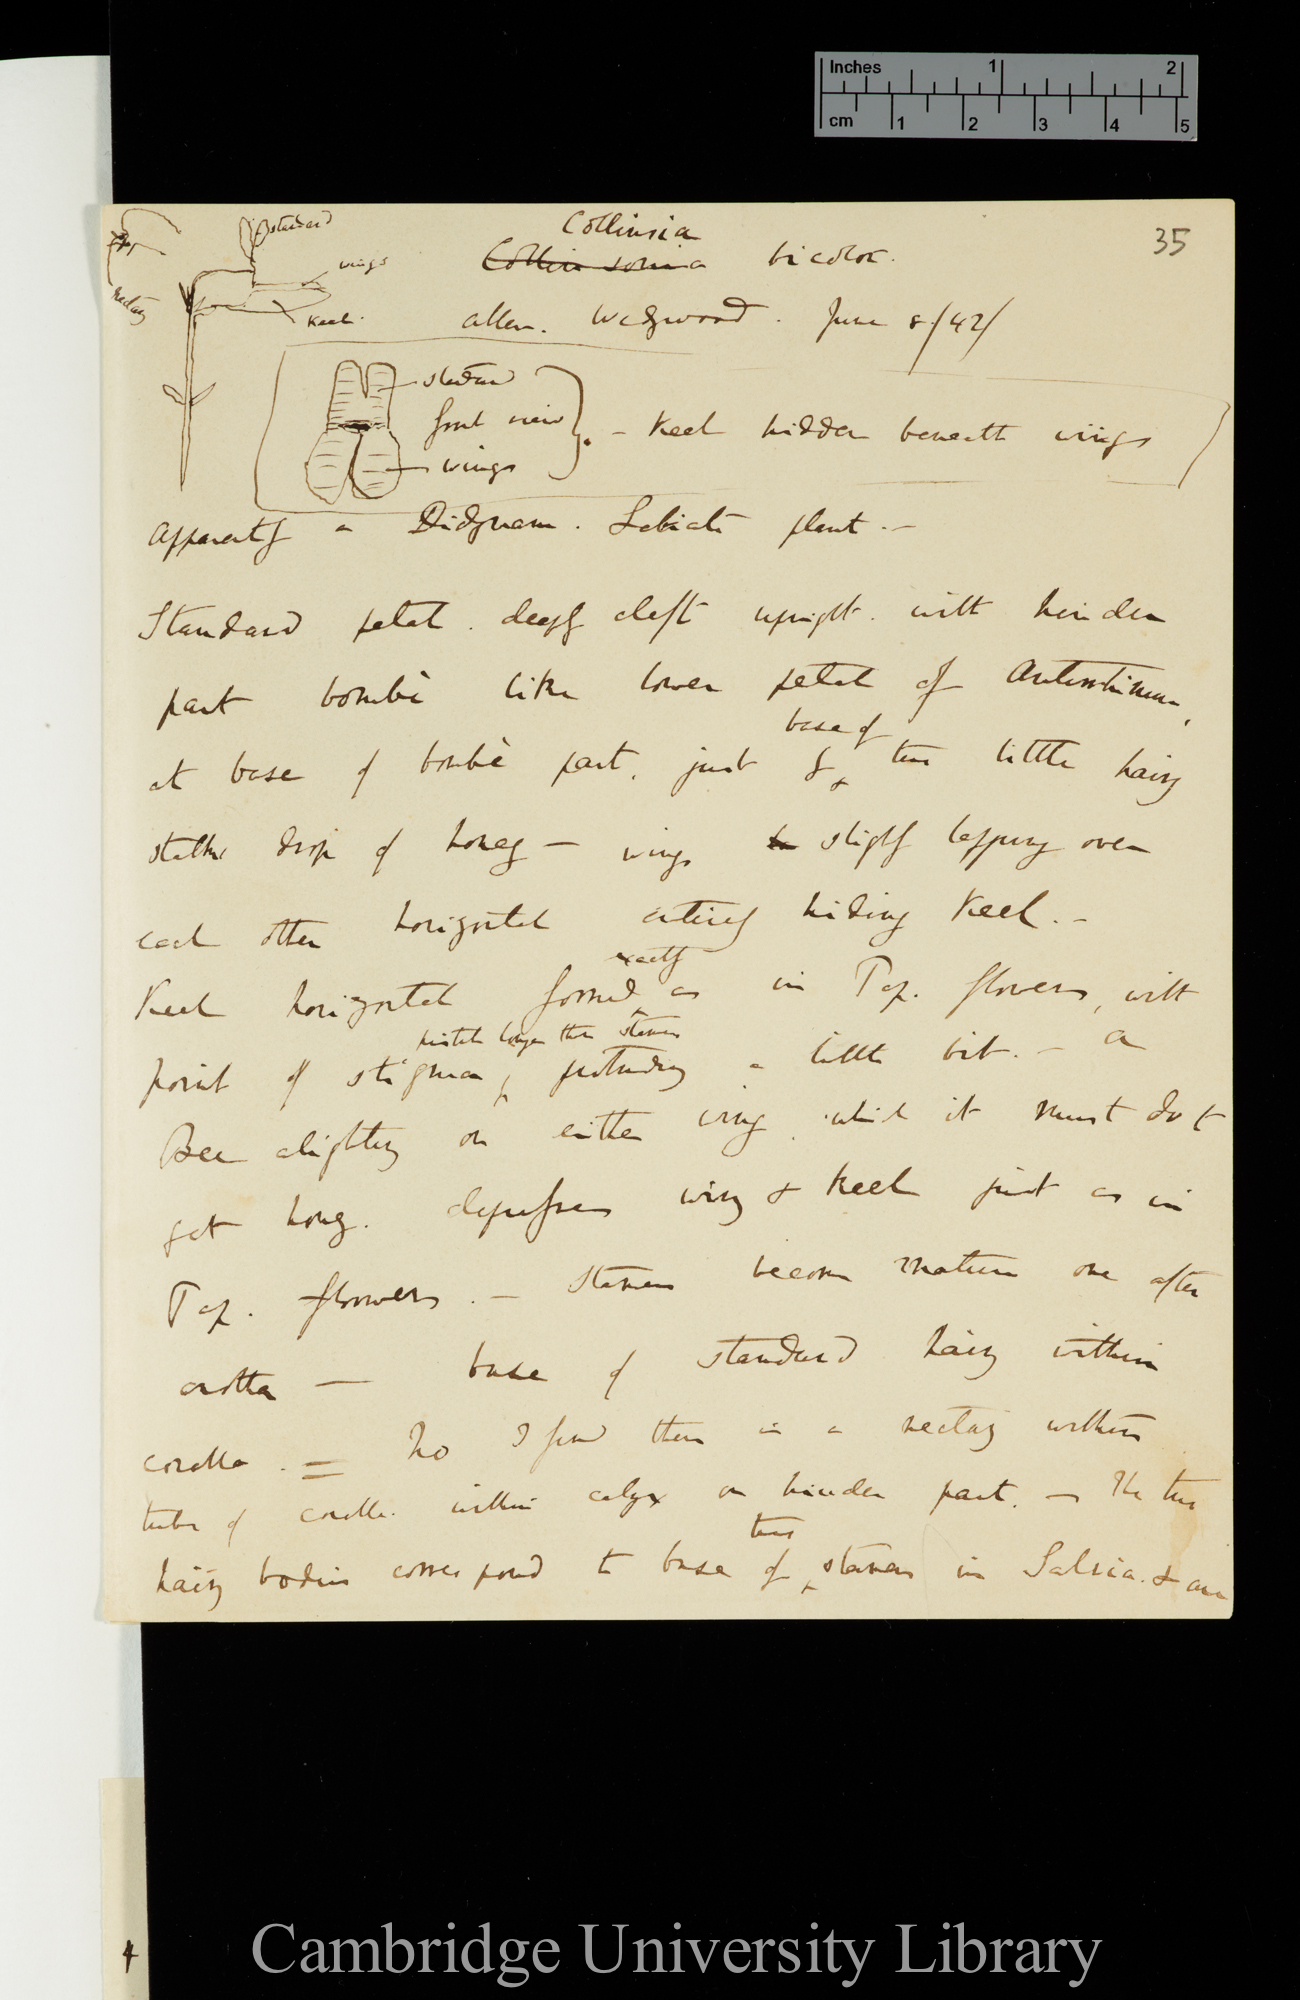 Inches 1 2
cm 1 2 3 4 5
35
standard
wings
nectary
Keel.
Collinsia
Collinsonia bicolor.
Allen. Wedgwood. June 8/42/
standard
front view
wings
– Keel hidden beneath wings
Apparently a Didynam. Labiate plant. –
Standard petal. deeply cleft upright. with hinder
part bombè like lower petal of Antirrhinum,
base of
at base of bombè part, just by two little hairy
stalks drop of honey – wings slightly lapping over
each other horizontal entirely hiding Keel. –
exactly
Keel horizontal formed as in Pap. flowers, with
pistil longer than stamens
point of stigma, protruding a little bit. – A
Bee alighting on either wing which it must do to
get honey. depresses wing & Keel just as in
Pap. flowers. – Stamens become mature one after
another — base of standard hairy within
corolla. = No I find there is a nectary within
tube of corolla. within calyx on hinder part. – The two
two
hairy bodies correspond to base of stamens in Salvia. & are
4
Cambridge University Library